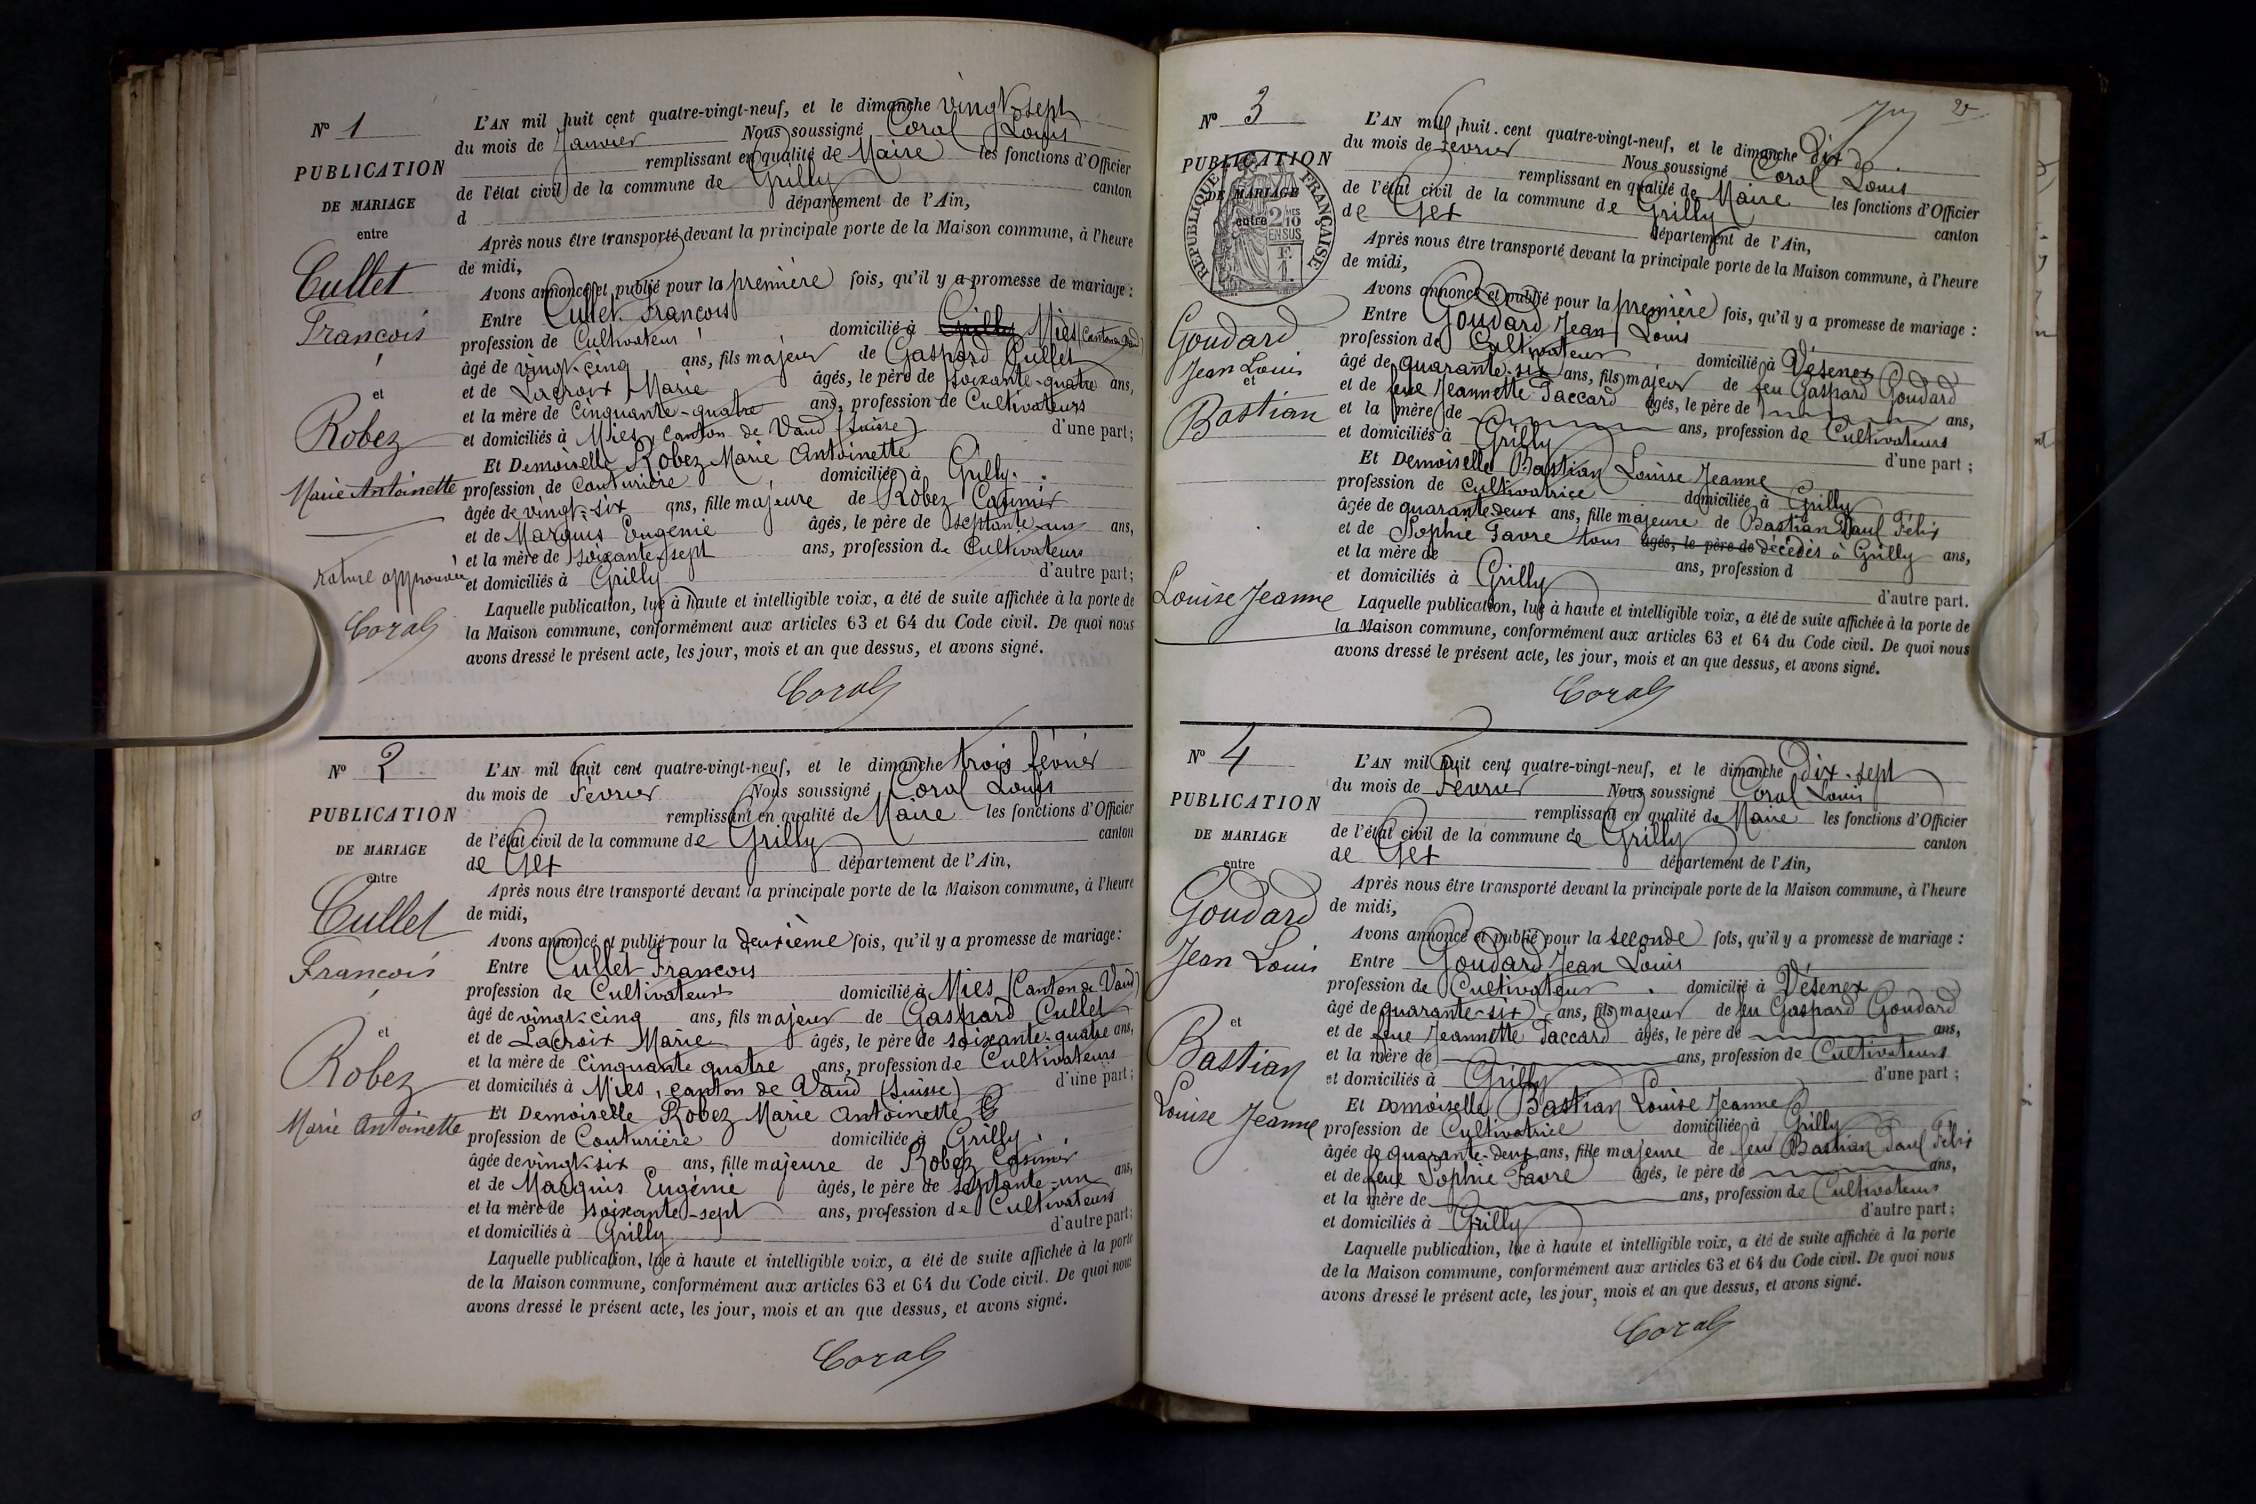 Nº 1
PUBLICATION
DE MARIAGE
entre
Cullet
François
et
Robez
Marie Antoinette
rature approuvée
Coral
L'AN mil huit cent quatre-vingt-neuf, et le dimanche vingt-sept
du mois de Janvier Nous soussigné Coral Louis
remplissant en qualité de Maire les fonctions d'Officier
de l'état civil de la commune de Grilly canton
d département de l'Ain,
Après nous être transporté devant la principale porte de la Maison commune, à l'heure
de midi,
Avons annoncé et publié pour la première fois, qu'il y a promesse de mariage :
Entre Cullet François
profession de Cultivateur domicilié à Grilly Mies (Canton de Vaud)
âgé de vingt-cinq ans, fils majeur de Gaspard Cullet
et de Lacroix Marie âgés, le père de soixante-quatre ans,
et la mère de cinquante-quatre ans, profession de Cultivateurs
et domiciliés à Mies, canton de Vaud (Suisse) d'une part;
Et Demoiselle Robez Marie Antoinette
profession de Couturière domiciliée à Grilly
âgée de vingt-six ans, fille majeure de Robez Casimir
et de Marquis Eugénie âgés, le père de septante-un ans,
et la mère de soixante-sept ans, profession de Cultivateurs
et domiciliés à Grilly d'autre part;
Laquelle publication, lue à haute et intelligible voix, a été de suite affichée à la porte de
la Maison commune, conformément aux articles 63 et 64 du Code civil. De quoi nous
avons dressé le présent acte, les jour, mois et an que dessus, et avons signé.
Coral
Nº 2
PUBLICATION
DE MARIAGE
entre
Cullet
François
et
Robez
Marie Antoinette
L'AN mil huit cent quatre-vingt-neuf, et le dimanche trois février
du mois de Février Nous soussigné Coral Louis
remplissant en qualité de Maire les fonctions d'Officier
de l'état civil de la commune de Grilly canton
de Gex département de l'Ain,
Après nous être transporté devant la principale porte de la Maison commune, à l'heure
de midi,
Avons annoncé et publié pour la deuxième fois, qu'il y a promesse de mariage:
Entre Cullet François
profession de Cultivateur domicilié à Mies (Canton de Vaud)
âgé de vingt-cinq ans, fils majeur de Gaspard Cullet
et de Lacroix Marie âgés, le père de soixante-quatre ans,
et la mère de cinquante quatre ans, profession de Cultivateurs
et domiciliés à Mies, canton de Vaud (Suisse) d'une part;
Et Demoiselle Robez Marie Antoinette
profession de Couturière domiciliée à Grilly
âgée de vingt-six ans, fille majeure de Robez Casimir
et de Marquis Eugénie âgés, le père de septante-un ans,
et la mère de soixante-sept ans, profession de Cultivateurs
et domiciliés à Grilly d'autre part;
Laquelle publication, lue à haute et intelligible voix, a été de suite affichée à la porte
de la Maison commune, conformément aux articles 63 et 64 du Code civil. De quoi nous
avons dressé le présent acte, les jour, mois et an que dessus, et avons signé.
Coral
2
Nº 3
PUBLICATION
DE MARIAGE
entre
RÉPUBLIQUE FRANÇAISE
2 MES
10
EN SUS
F.
1.
Goudard
Jean Louis
et
Bastian
Louise Jeanne
L'AN mil huit cent quatre-vingt-neuf, et le dimanche Dix
du mois de Février Nous soussigné Coral Louis
remplissant en qualité de Maire les fonctions d'Officier
de l'état civil de la commune de Grilly canton
de Gex département de l'Ain,
Après nous être transporté devant la principale porte de la Maison commune, à l'heure
de midi,
Avons annoncé et publié pour la première fois, qu'il y a promesse de mariage :
Entre Goudard Jean Louis
profession de Cultivateur domicilié à Vésenex
âgé de quarante-six ans, fils majeur de feu Gaspard Goudard
et de feue Jeannette Paccard âgés, le père de ans,
et la mère de ans, profession de Cultivateurs
et domiciliés à Grilly d'une part ;
Et Demoiselle Bastian Louise Jeanne
profession de Cultivatrice domiciliée à Grilly
âgée de quarante deux ans, fille majeure de Bastian Paul Félix
et de Sophie Favre tous âgés, le père de décédés à Grilly ans,
et la mère de ans, profession d
et domiciliés à Grilly d'autre part.
Laquelle publication, lue à haute et intelligible voix, a été de suite affichée à la porte de
la Maison commune, conformément aux articles 63 et 64 du Code civil. De quoi nous
avons dressé le présent acte, les jour, mois et an que dessus, et avons signé.
Coral
Nº 4
PUBLICATION
DE MARIAGE
entre
Goudard
Jean Louis
et
Bastian
Louise Jeanne
L'AN mil huit cent quatre-vingt-neuf, et le dimanche Dix-sept
du mois de Février Nous soussigné Coral Louis
remplissant en qualité de Maire les fonctions d'Officier
de l'état civil de la commune de Grilly canton
de Gex département de l'Ain,
Après nous être transporté devant la principale porte de la Maison commune, à l'heure
de midi,
Avons annoncé et publié pour la seconde fois, qu'il y a promesse de mariage :
Entre Goudard Jean Louis
profession de Cultivateur domicilié à Vésenex
âgé de quarante-six ans, fils majeur de feu Gaspard Goudard
et de feue Jeannette Paccard âgés, le père de ans,
et la mère de ans, profession de Cultivateurs
et domiciliés à Grilly d'une part ;
Et Demoiselle Bastian Louise Jeanne
profession de Cultivatrice domiciliée à Grilly
âgée de quarante-deux ans, fille majeure de feu Bastian Paul Félix
et de feue Sophie Favre âgés, le père de ans,
et la mère de ans, profession de Cultivateurs
et domiciliés à Grilly d'autre part ;
Laquelle publication, lue à haute et intelligible voix, a été de suite affichée à la porte
de la Maison commune, conformément aux articles 63 et 64 du Code civil. De quoi nous
avons dressé le présent acte, les jour, mois et an que dessus, et avons signé.
Coral